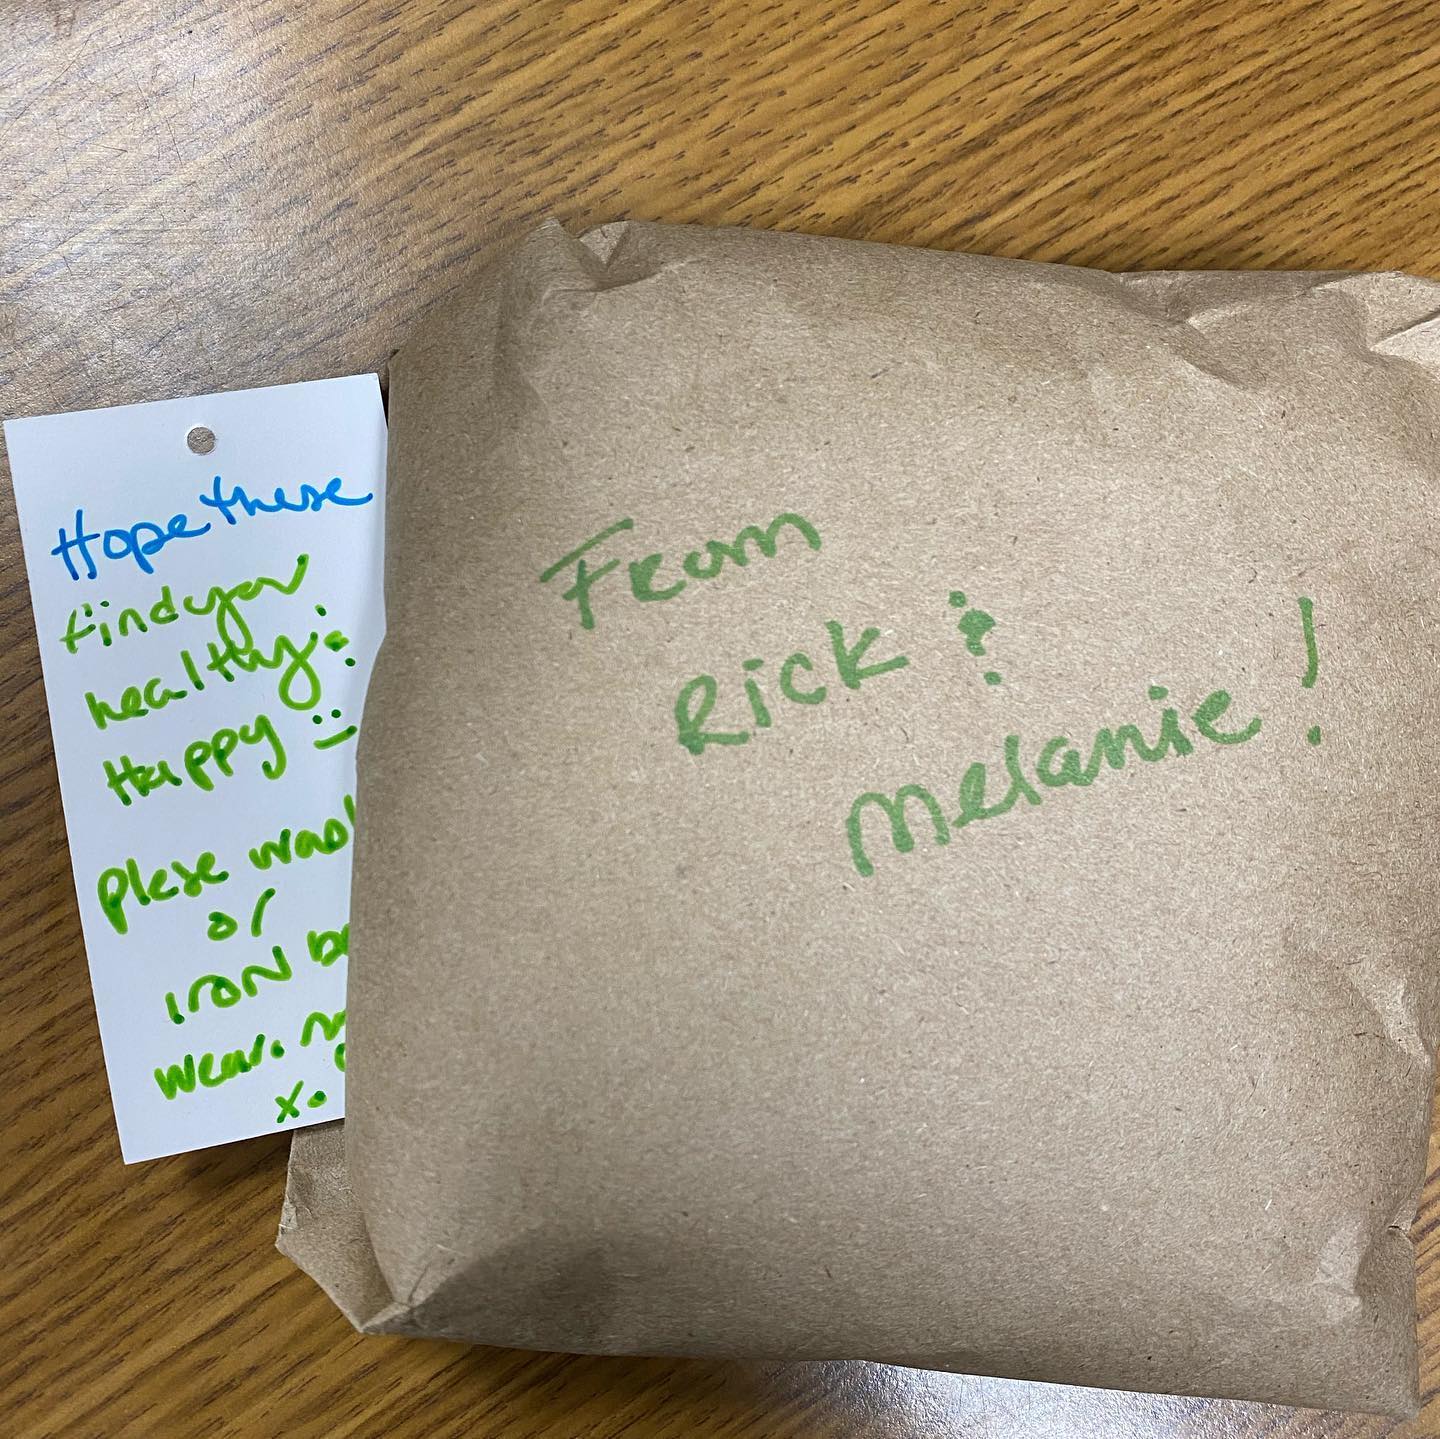 Hope these
find you
healthy &
Happy
plese wash
or
IRON be
wear.
xo
From
Rick &
Melanie!